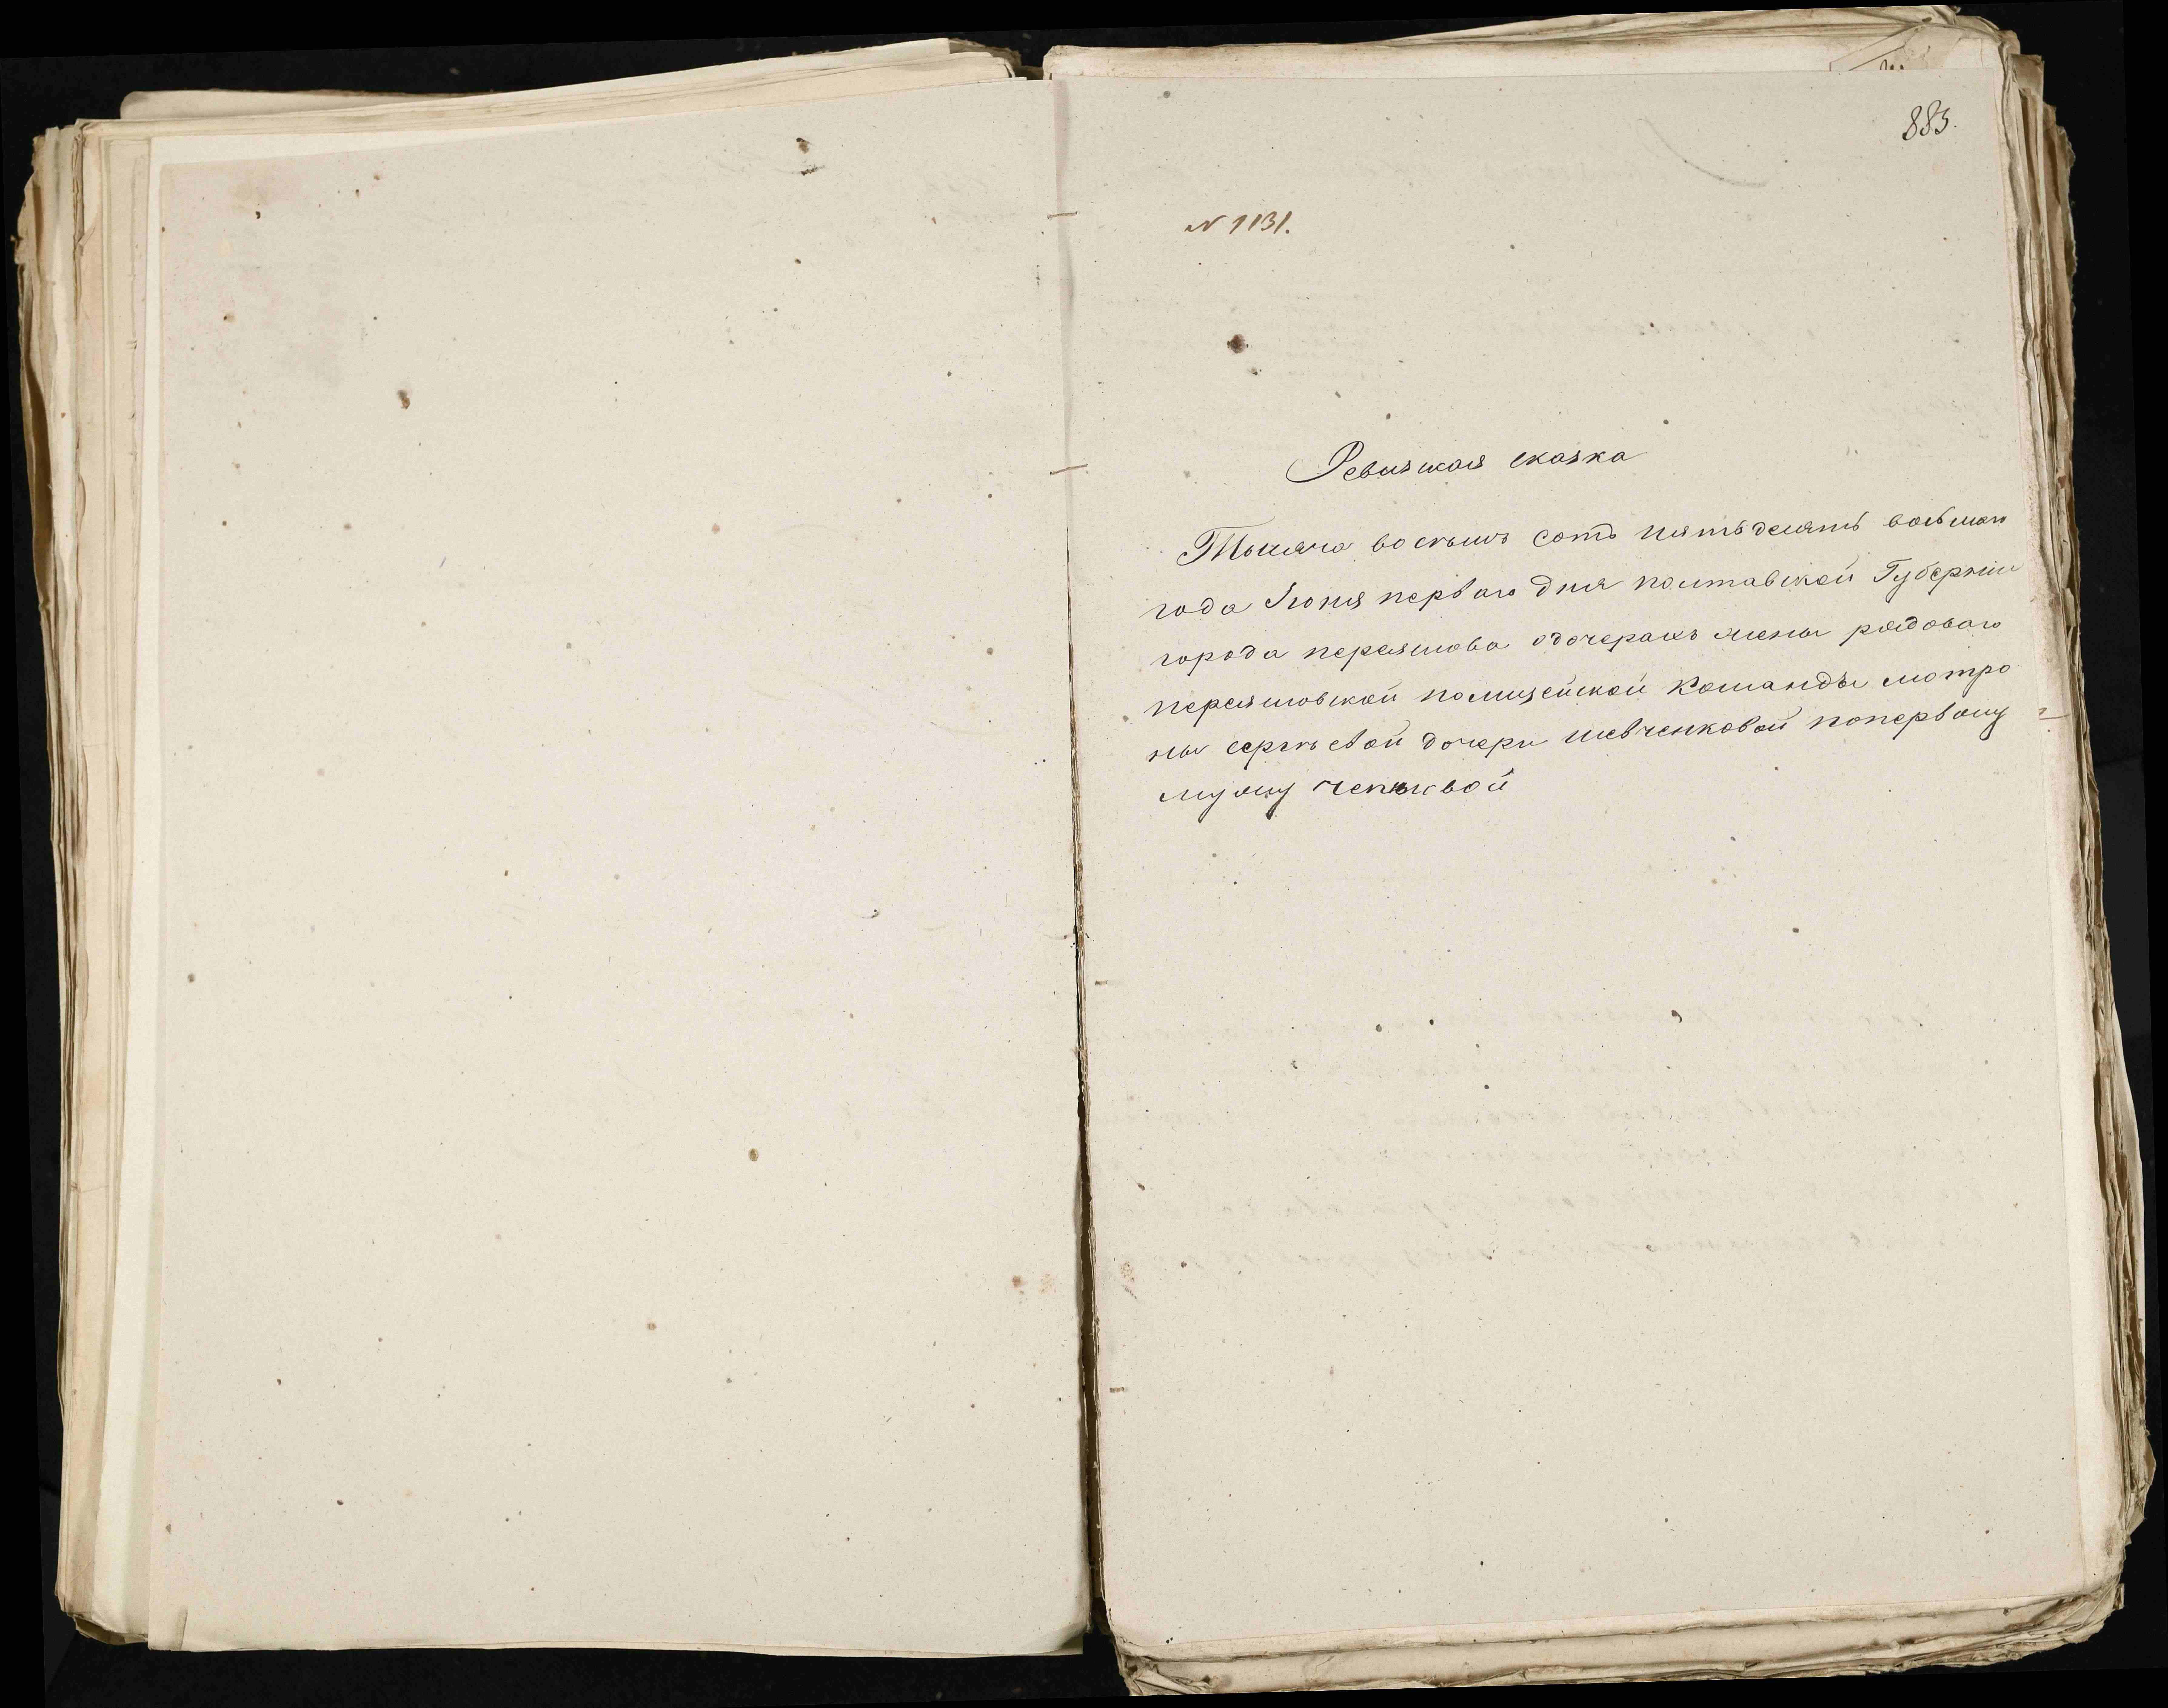 883.
N 1131.
Ревизкая сказка
Тысяча восемь сотъ пятьдесятъ восьмаго
года Іюня перваго дня полтавской Губерніи
города переяслова одочеряхъ жены рядоваго
переясловской полицейской команды мотро
ны сергѣевой дочери шевченковой поперьвому
мужу